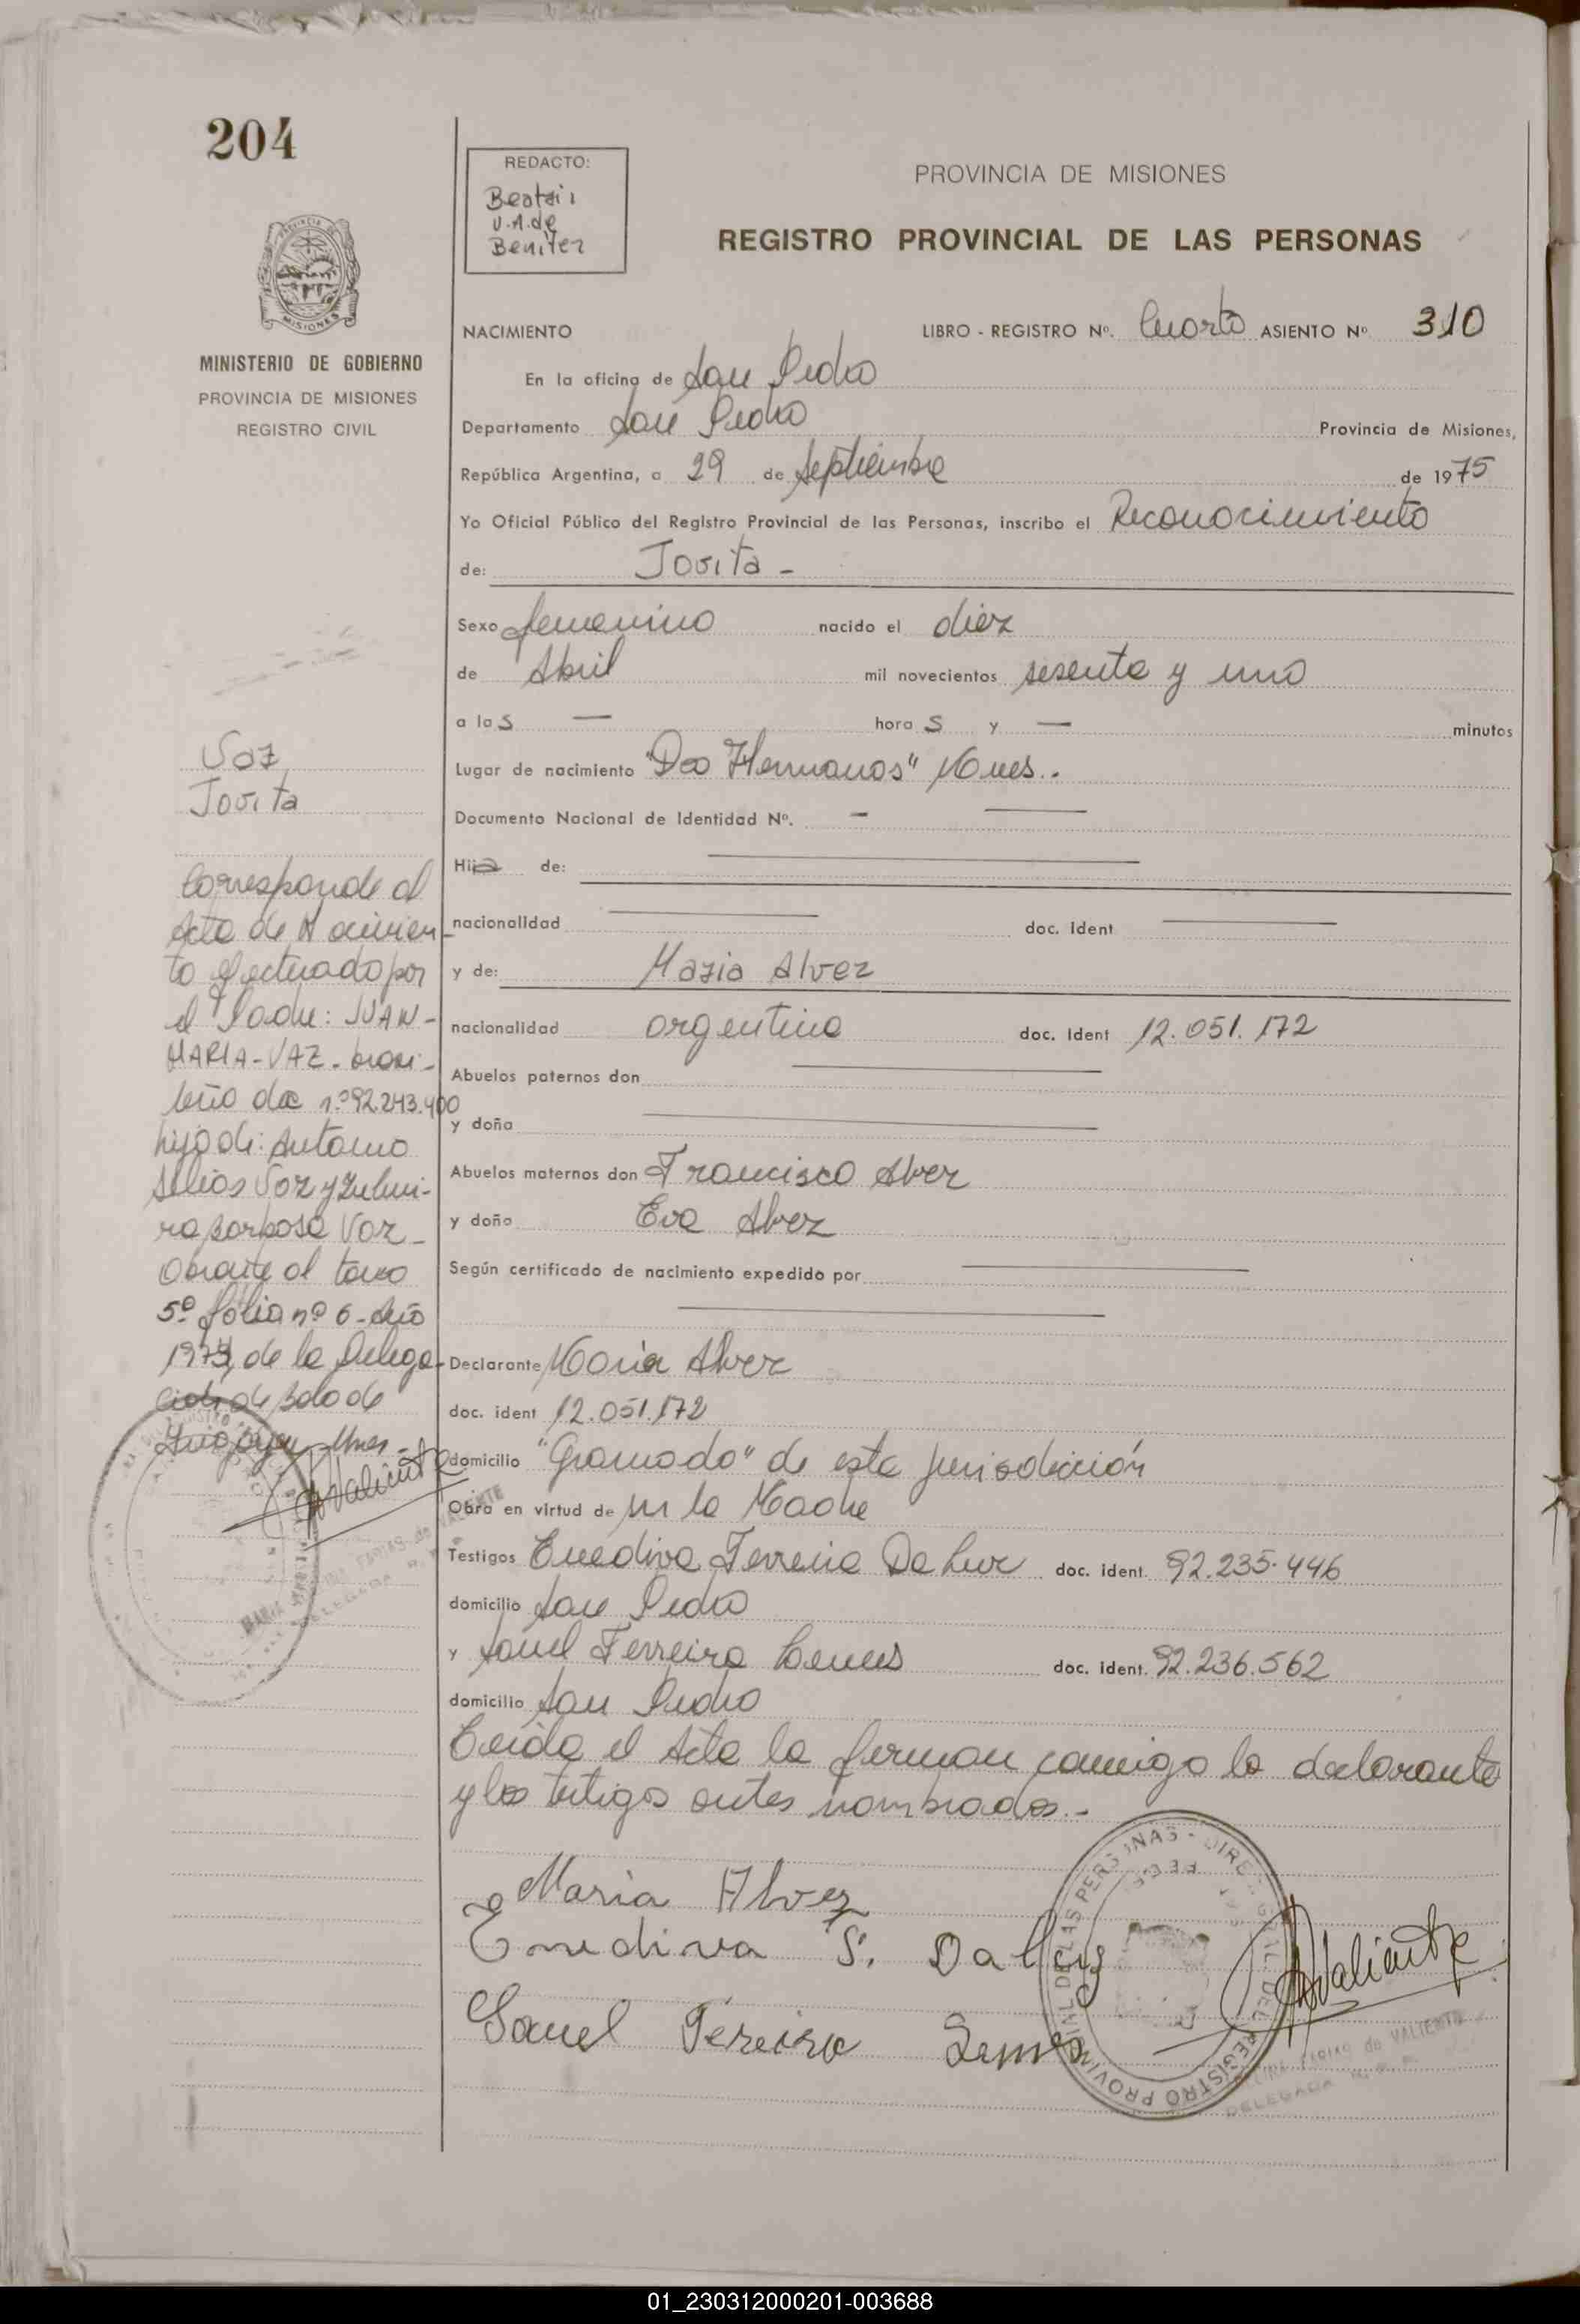 204
REDACTO:
Beatriz
V.A.de
Benitez
PROVINCIA DE MISIONES
REGISTRO PROVINCIAL DE LAS PERSONAS
MISIONES
MINISTERIO DE GOBIERNO
PROVINCIA DE MISIONES
REGISTRO CIVIL
NACIMIENTO LIBRO - REGISTRO Nº. Cuarto ASIENTO Nº 310
En la oficina de San Pedro
Departamento San Pedro Provincia de Misiones,
República Argentina, a 29 de Septiembre de 1975
Yo Oficial Público del Registro Provincial de las Personas, inscribo el Reconocimiento
de: Jovita -
Sexo femenino nacido el diez
de Abril mil novecientos sesenta y uno
a las — horas y — minutos
Lugar de nacimiento "Dos Hermanas" Mnes.
Documento Nacional de Identidad Nº. —
Hija de:
nacionalidad doc. ident
y de: Maria Alvez
nacionalidad argentina doc. ident 12.051.172
Abuelos paternos don
y doña
Abuelos maternos don Francisco Alvez
y doña Eva Alvez
Según certificado de nacimiento expedido por
Declarante Maria Alvez
doc. ident 12.051.172
domicilio "Gramado" de esta jurisdicción
Obra en virtud de ser la Madre
Testigos Enedina Ferreira Da Luz doc. ident. 92.235.446
domicilio San Pedro
y Saul Ferreira Lemes doc. ident. 92.236.562
domicilio San Pedro
Leida el Acta la firman conmigo la declarante
y los testigos antes nombrados.-
Maria Alvez
Enedina F. Da luz
Sauel Fereira Lemes
AValiente
REGISTRO PROVINCIAL DE LAS PERSONAS
FARIAS de VALIENTE
DELEGADA
Vaz
Jovita
Corresponde al
Acta de Nacimien-
to efectuado por
el Padre: JUAN-
MARIA-VAZ- brasi-
leño doc nº92.243.400
hijo de: Antonio
Vaz y
ra Barbosa Vaz-
Obrante al tomo
5º folio nº 6- Año
de la Delega-
ción de Bdo de
Irigoyen - Mnes -
AValiente
FARIAS de VALIENTE
DELEGADA
01_230312000201-003688